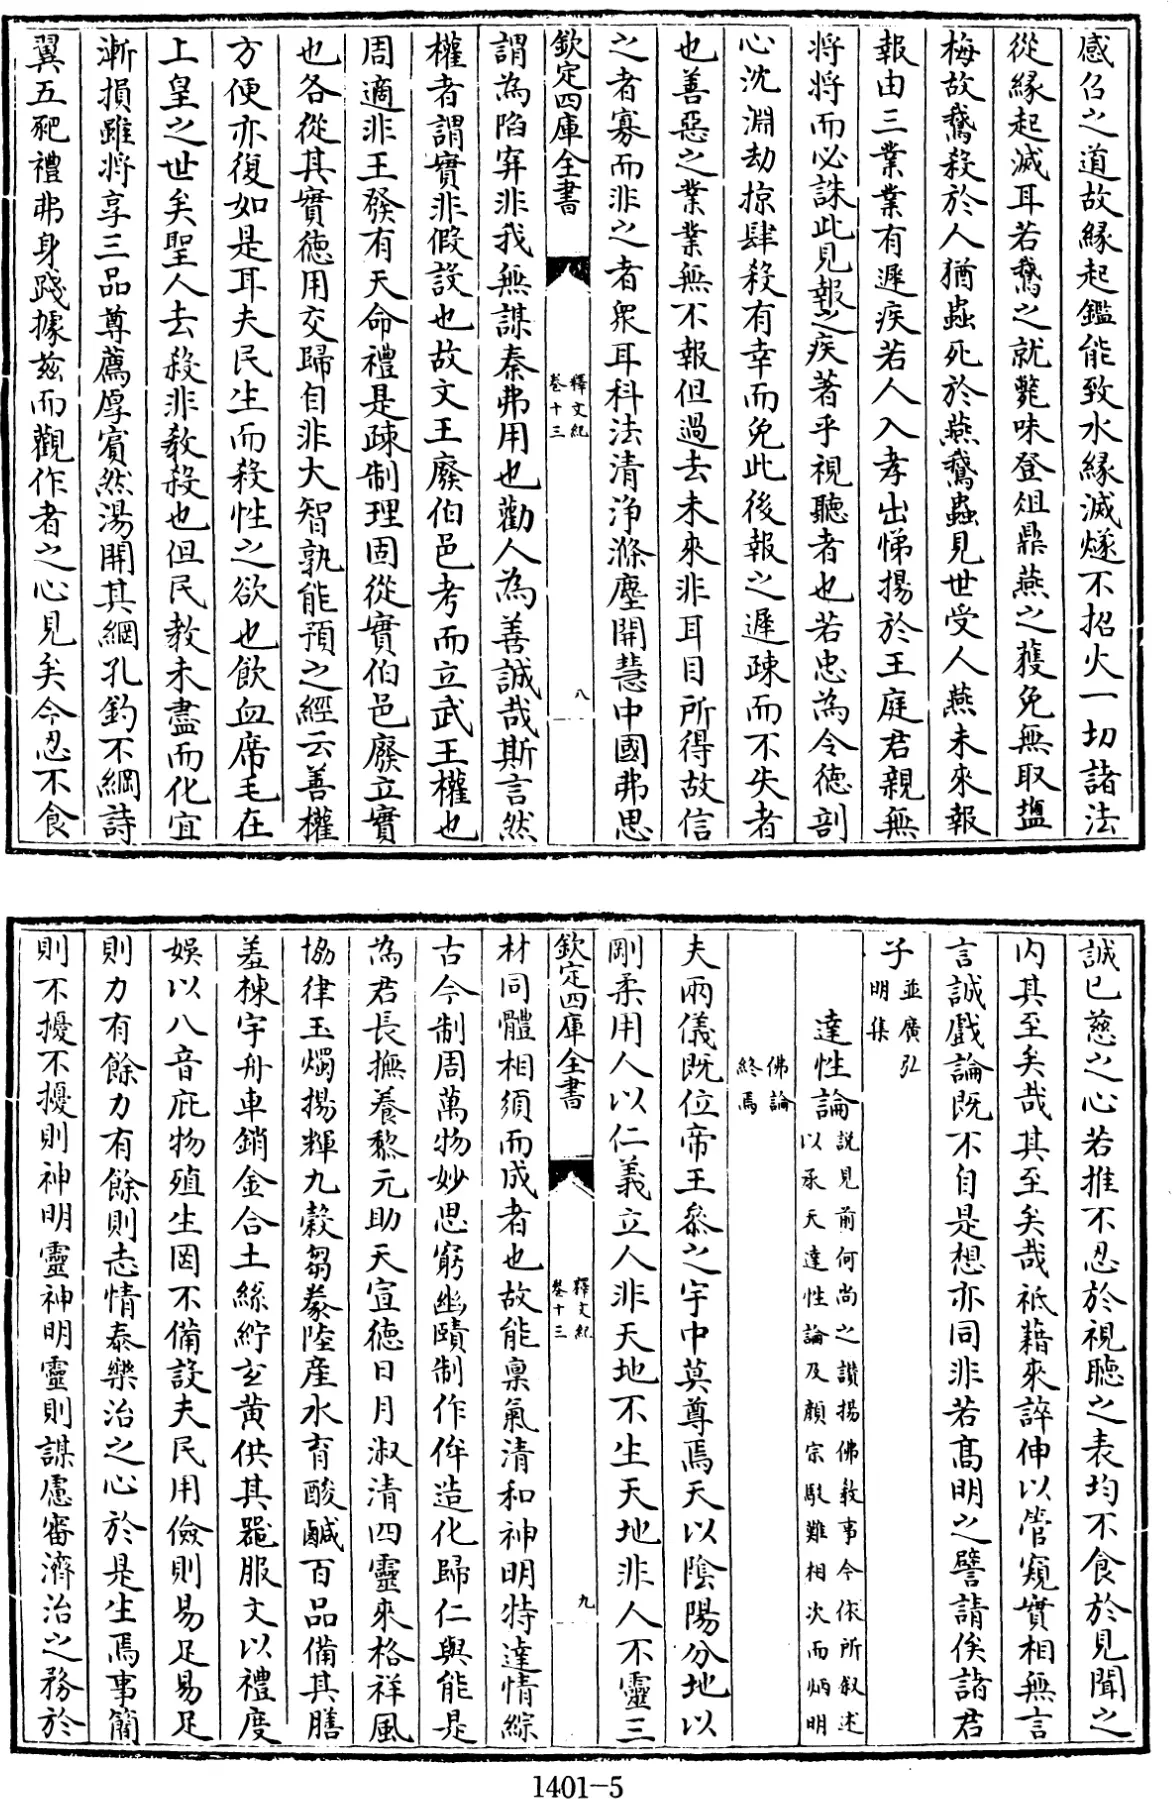 感召之道故縁起鑑能致水縁滅燧不招火一切諸法
從縁起滅耳若鵞之就斃味登俎鼎燕之獲免無取盬
梅故鵞殺於人猶蟲死於燕鵞蟲見世受人燕未來報
報由三業業有遲疾若人入孝出悌揚於王庭君親無
将将而必誅此見報之疾著乎視聽者也若忠為令德剖
心沈淵劫掠肆殺有幸而免此後報之遲疎而不失者
也善惡之業業無不報但過去未來非耳目所得故信
之者寡而非之者衆耳科法清浄滌塵開慧中國弗思
欽定四庫全書
釋文紀
卷十三
八
謂為陷穽非我無謀秦弗用也勸人為善誠哉斯言然
權者謂實非假設也故文王廢伯邑考而立武王權也
周適非王發有天命禮是疎制理固從實伯邑廢立實
也各從其實德用交歸自非大智孰能預之經云善權
方便亦復如是耳夫民生而殺性之欲也飲血席毛在
上皇之世矣聖人去殺非教殺也但民教未盡而化宜
漸損雖将享三品尊薦厚賓然湯開其網孔釣不綱詩
翼五豝禮弗身踐據兹而觀作者之心見矣今忍不食
誠已慈之心若推不忍於視聽之表均不食於見聞之
内其至矣哉其至矣哉祗藉來誶伸以管窺實相無言
言誠戲論既不自是想亦同非若髙明之譬請俟諸君
子並廣弘
明集
達性論説見前何尚之讃揚佛教事今依所叙述
以承天達性論及顔宗駁難相次而炳明
佛論
終焉
夫兩儀既位帝王叅之宇中莫尊焉天以陰陽分地以
剛柔用人以仁義立人非天地不生天地非人不靈三
欽定四庫全書
釋文紀
卷十三
九
材同體相須而成者也故能稟氣清和神明特達情綜
古今制周萬物妙思窮幽賾制作侔造化歸仁與能是
為君長撫養黎元助天宣德日月淑清四靈來格祥風
恊律玉燭揚輝九穀芻豢陸産水育酸鹹百品備其膳
羞棟宇舟車銷金合土絲紵玄黄供其噐服文以禮度
娱以八音庇物殖生罔不備設夫民用儉則易足易足
則力有餘力有餘則志情泰樂治之心於是生焉事簡
則不擾不擾則神明靈神明靈則謀慮審濟治之務於
1401-5